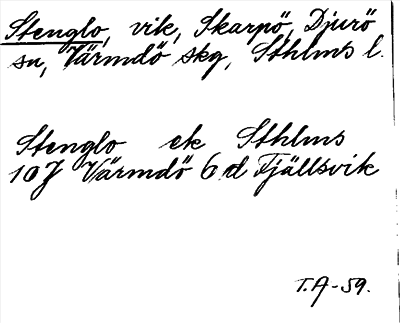 Stenglo, vik, Skarpö, Djurö
sn, Värmdö skg, Sthlms l.
Stenglo ek Sthlms
10J Värmdö 6 d Fjällsvik
T.A-59.